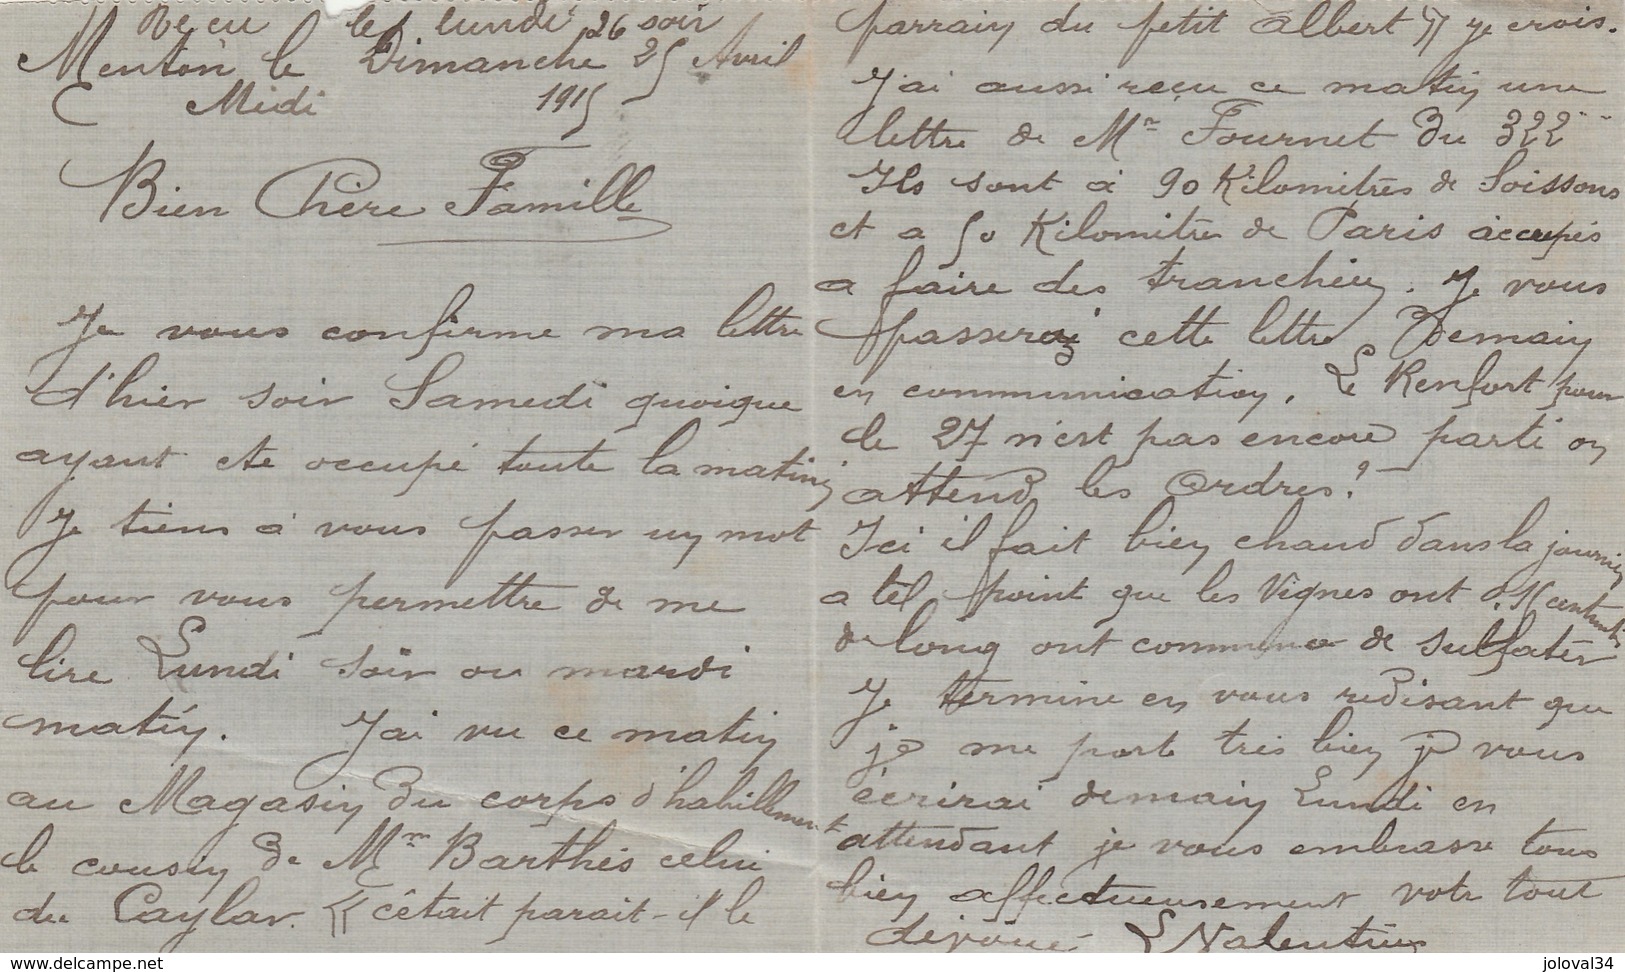 Reçu le lundi 26 soir
Menton le Dimanche 25 Avril
Midi 1915
Bien Chère Famille
Je vous confirme ma lettre
d'hier soir Samedi quoique
ayant ete occupé toute la matiné
Je tiens à vous passer un mot
pour vous permettre de me
lire Lundi soir ou mardi
matin. J'ai vu ce matin
au Magasin du corps d'habillement
le cousin de Mme Barthés celui
du Caylar. « c'était parait-il le
parrain du petit Albert » je crois.
J'ai aussi reçu ce matin une
lettre de Mr Fournet du 322
Ils sont à 90 Kilomètres de Soissons
et a 50 Kilomitre de Paris occupés
a faire des tranchées. Je vous
passerai cette lettre Demain
en communication. Le Renfort pour
le 27 n'est pas encore parti on
attend les Ordres?
Ici il fait bien chaud dans la journée
a tel point que les Vignes ont
de long ont commencé de sulfater
Je termine en vous redisant que
je me porte très bien je vous
écrirai demain Lundi en
attendant je vous embrasse tous
bien affectueusement votre tout
dévoué L Valentin
www.delcampe.net
joloval34